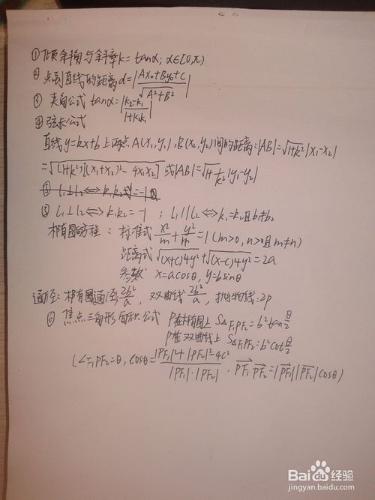 ① 倾斜角与斜率k=tanα, α∈[0,π)
② 点到直线的距离d=|Ax₀+By₀+C|/√(A²+B²)
③ 夹角公式 tanα=|k₂-k₁|/|1+k₂k₁|
④ 弦长公式
直线y=kx+b上两点A(x₁,y₁),B(x₂,y₂)间的距离:|AB|=√(1+k²)|x₁-x₂|
=√(1+k²)[(x₁+x₂)²-4x₁x₂] 或|AB|=√(1+1/k²)|y₁-y₂|
⑤ L₁⊥L₂⇔k₁k₂=-1 ; L₁||L₂⇔k₁=k₂且b₁≠b₂
椭圆方程: 标准式 x²/m+y²/n=1(m>0,n>0且m≠n)
距离式√(x+c)²+y²+√(x-c)²+y²=2a
参数 x=acosθ, y=bsinθ
通径: 椭圆通径2b²/a, 双曲线2b²/a, 抛物线:2p
焦点三角形面积公式 P在椭圆上 S△F₁PF₂=b²tanθ/2
P在双曲线上 S△F₁PF₂=b²cotθ/2
(∠F₁PF₂=θ, cosθ=|PF₁|²+|PF₂|²-4c²/|PF₁|·|PF₂|, PF₁·PF₂=|PF₁||PF₂|cosθ)
Baidu经验
jingyan.baidu.com